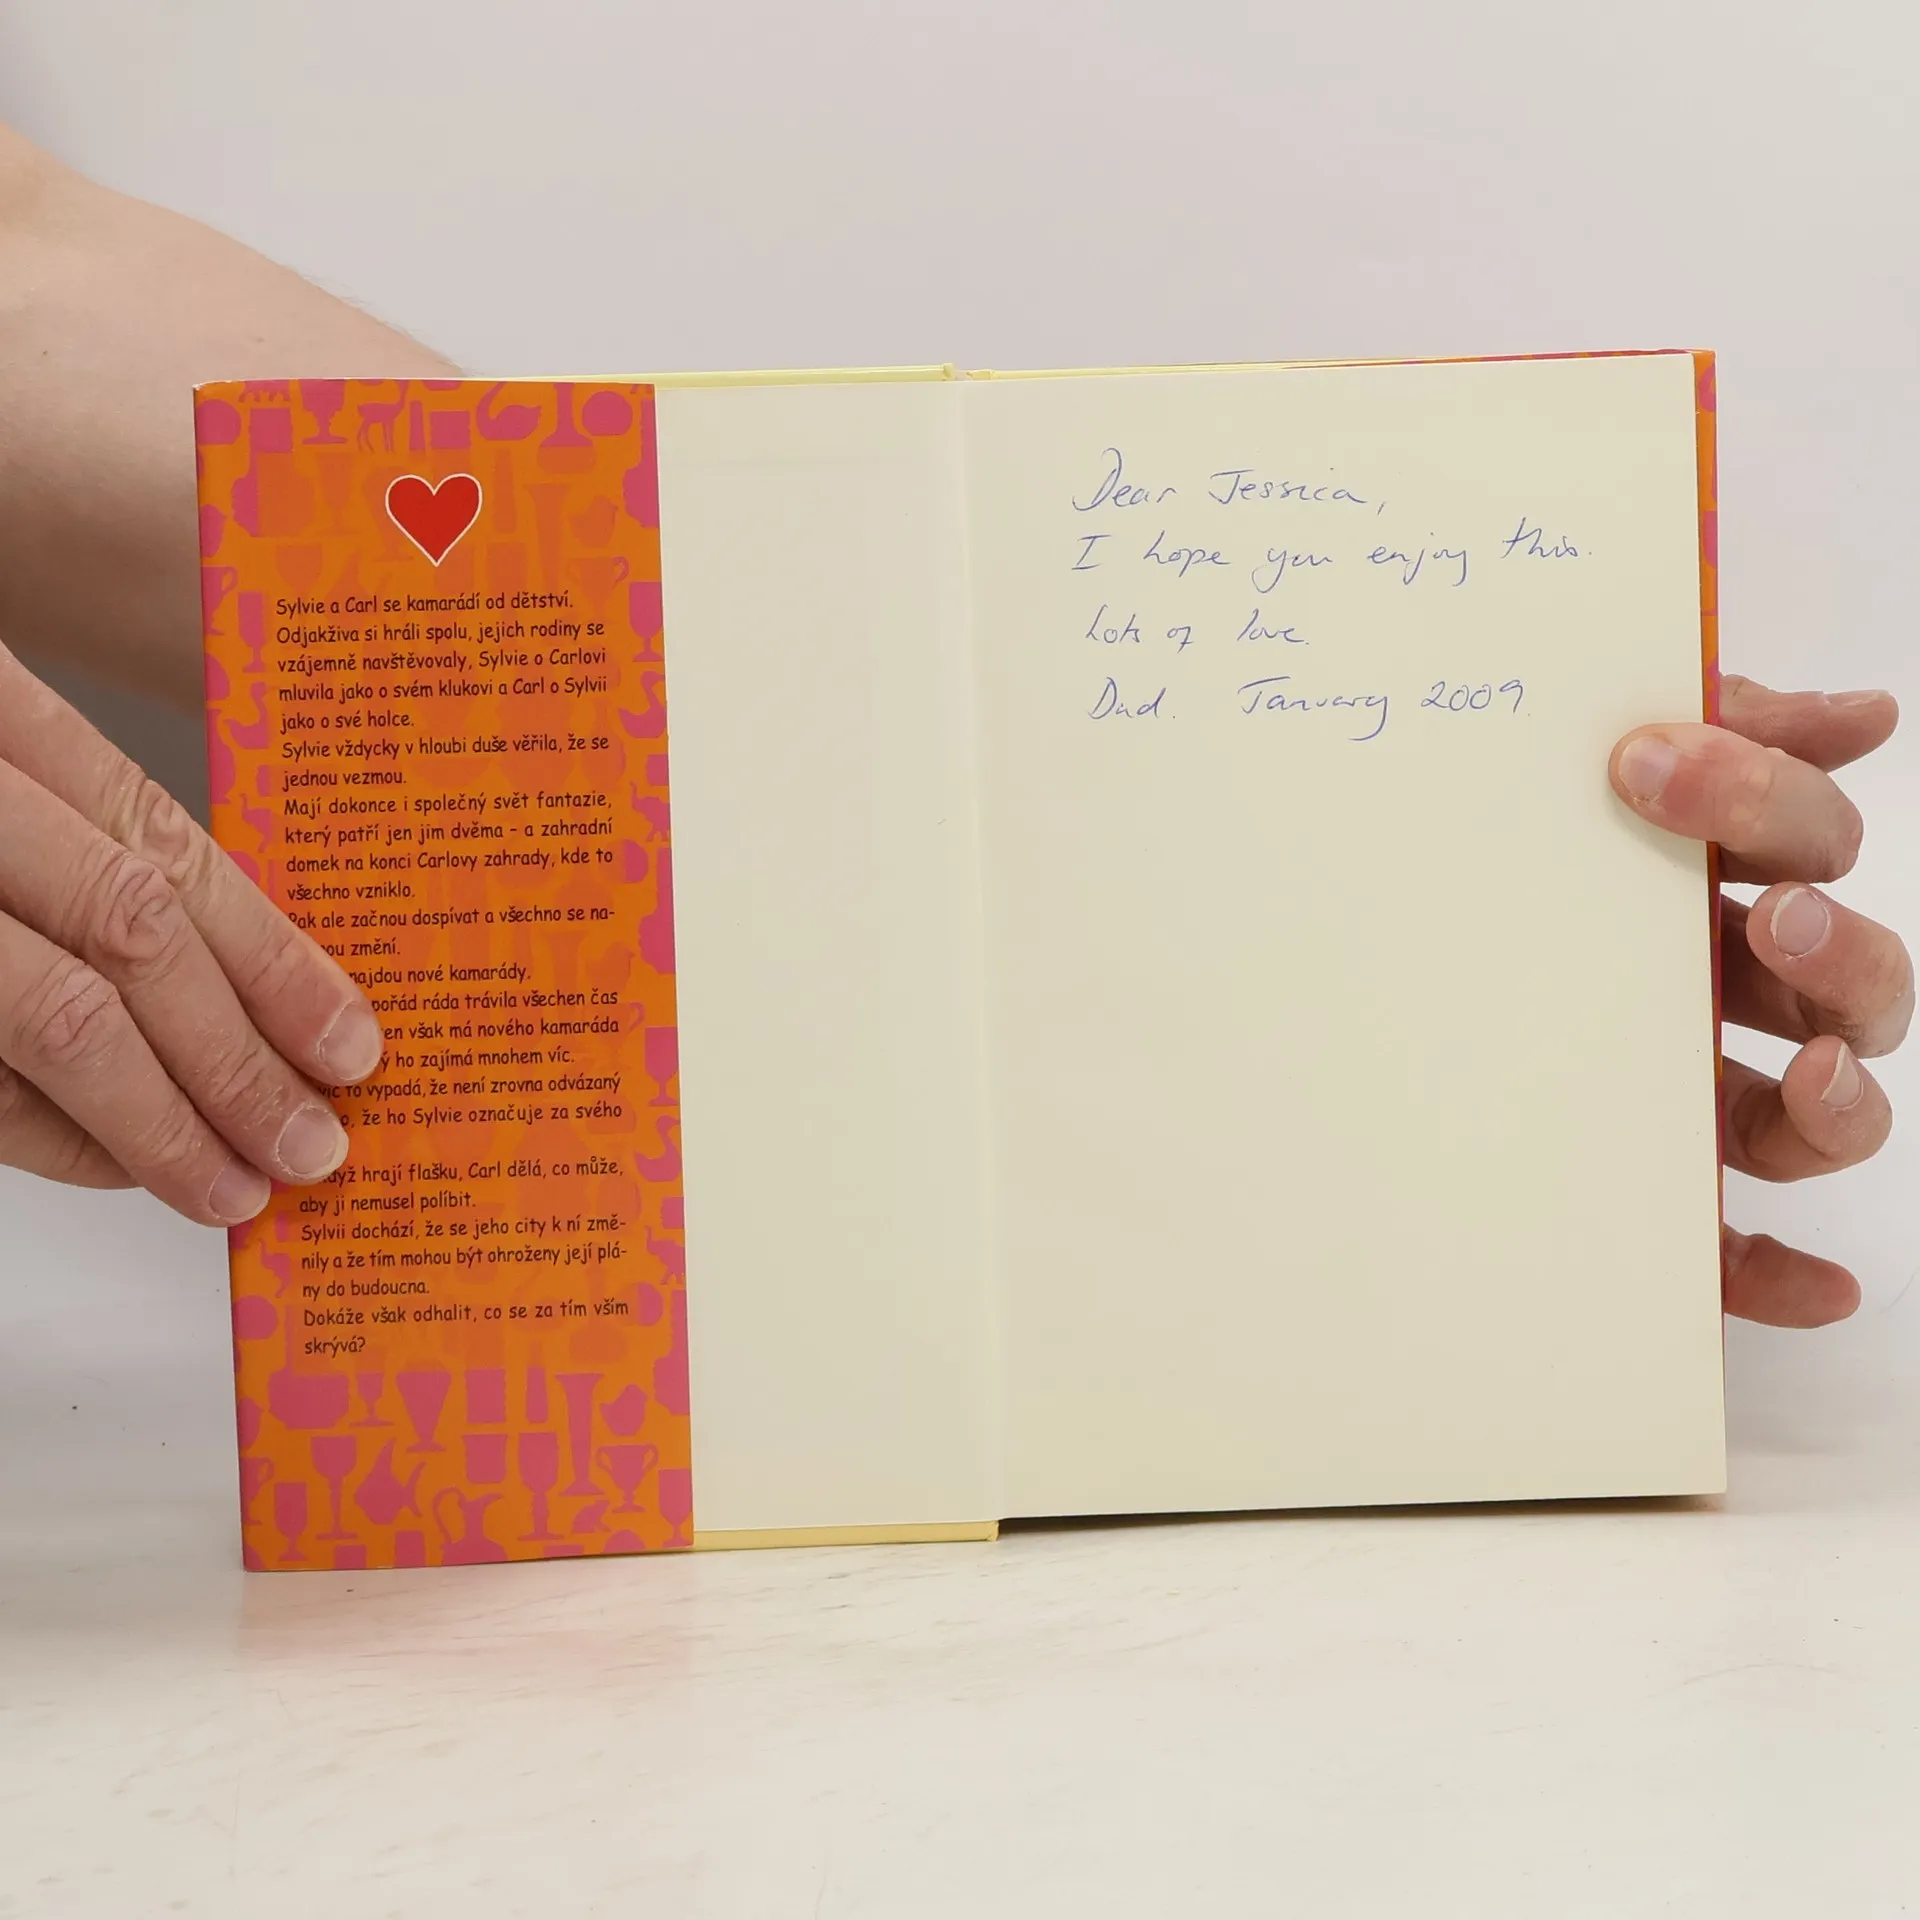 Sylvie a Carl se kamarádí od dětství.
Odjakživa si hráli spolu, jejich rodiny se
vzájemně navštěvovaly, Sylvie o Carlovi
mluvila jako o svém klukovi a Carl o Sylvii
jako o své holce.
Sylvie vždycky v hloubi duše věřila, že se
jednou vezmou.
Mají dokonce i společný svět fantazie,
který patří jen jim dvěma - a zahradní
domek na konci Carlovy zahrady, kde to
všechno vzniklo.
Pak ale začnou dospívat a všechno se na-
změní.
najdou nové kamarády.
pořád ráda trávila všechen čas
však má nového kamaráda
ho zajímá mnohem víc.
to vypadá, že není zrovna odvázaný
že ho Sylvie označuje za svého
hrají flašku, Carl dělá, co může,
aby ji nemusel políbit.
Sylvii dochází, že se jeho city k ní změ-
nily a že tím mohou být ohroženy její plá-
ny do budoucna.
Dokáže však odhalit, co se za tím vším
skrývá?
Dear Jessica,
I hope you enjoy this.
Lots of love.
Dad. January 2009.